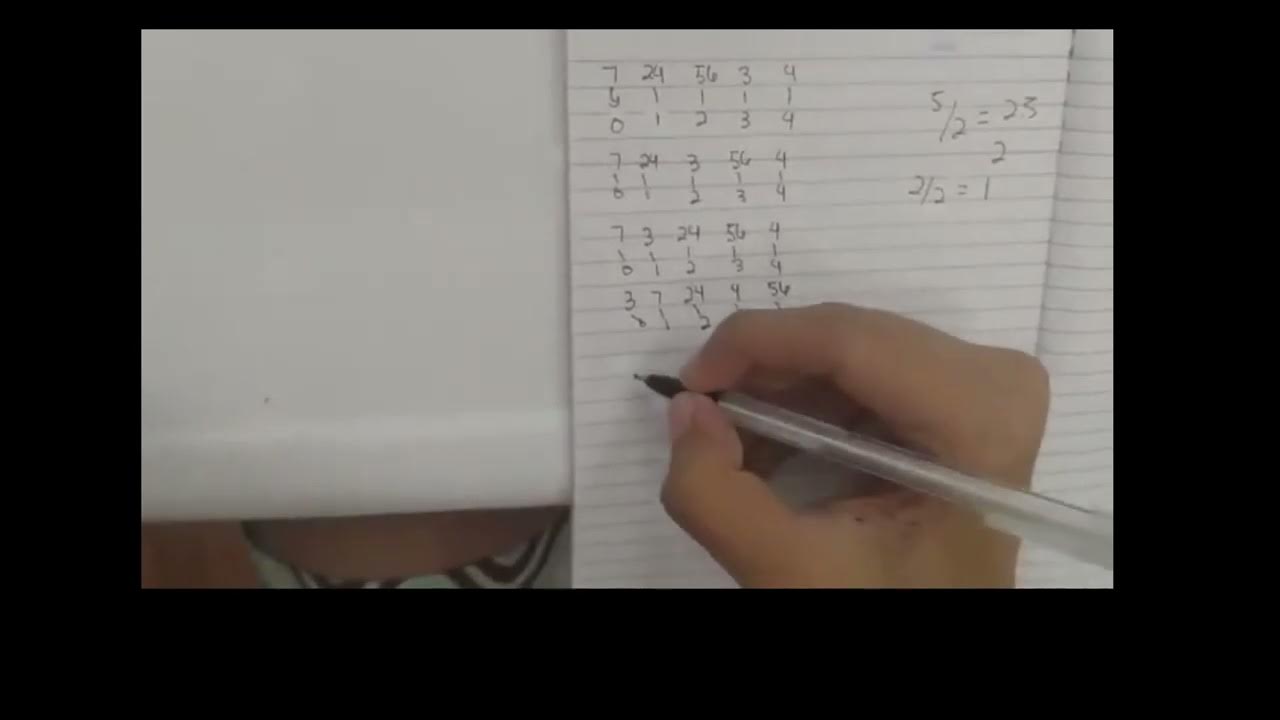 7 24 56 3 4
0 1 2 3 4
7 24 3 56 4
0 1 2 3 4
7 3 24 56 4
0 1 2 3 4
3 7 24 4 56
0 1 2
5/2 = 2.5
2
2/2 = 1